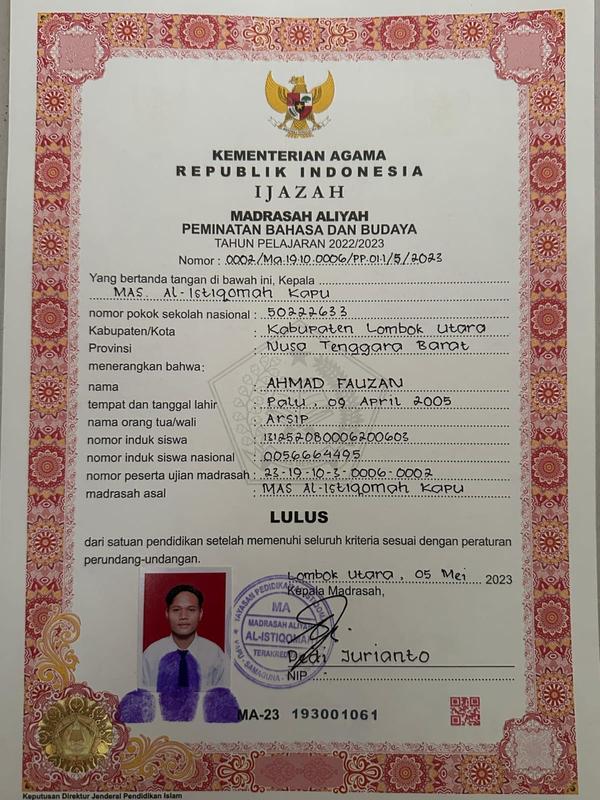 KEMENTERIAN AGAMA
REPUBLIK INDONESIA
IJAZAH
MADRASAH ALIYAH
PEMINATAN BAHASA DAN BUDAYA
TAHUN PELAJARAN 2022/2023
Nomor : 0002/Ma.19.10.0006/PP.01.1/5/2023
Yang bertanda tangan di bawah ini, Kepala
MAS. Al-Istiqomah Kapu
nomor pokok sekolah nasional : 50222633
Kabupaten/Kota : Kabupaten Lombok Utara
Provinsi : Nusa Tenggara Barat
menerangkan bahwa:
nama : AHMAD FAUZAN
tempat dan tanggal lahir : Palu, 09 April 2005
nama orang tua/wali : Arsip
nomor induk siswa : 131252080006200603
nomor induk siswa nasional : 0056664495
nomor peserta ujian madrasah : 23-19-10-3-0006-0002
madrasah asal : MAS Al-Istiqomah Kapu
LULUS
dari satuan pendidikan setelah memenuhi seluruh kriteria sesuai dengan peraturan
perundang-undangan.
Lombok Utara, 05 Mei 2023
Kepala Madrasah,
MA
MADRASAH ALIYAH
AL-ISTIQOMAH
Dedi Jurianto
NIP. -
MA-23 193001061
Keputusan Direktur Jenderal Pendidikan Islam